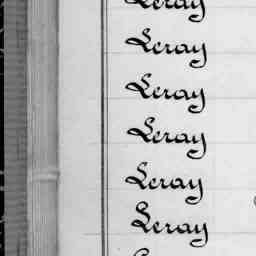 Leray
Leray
Leray
Leray
Leray
Leray